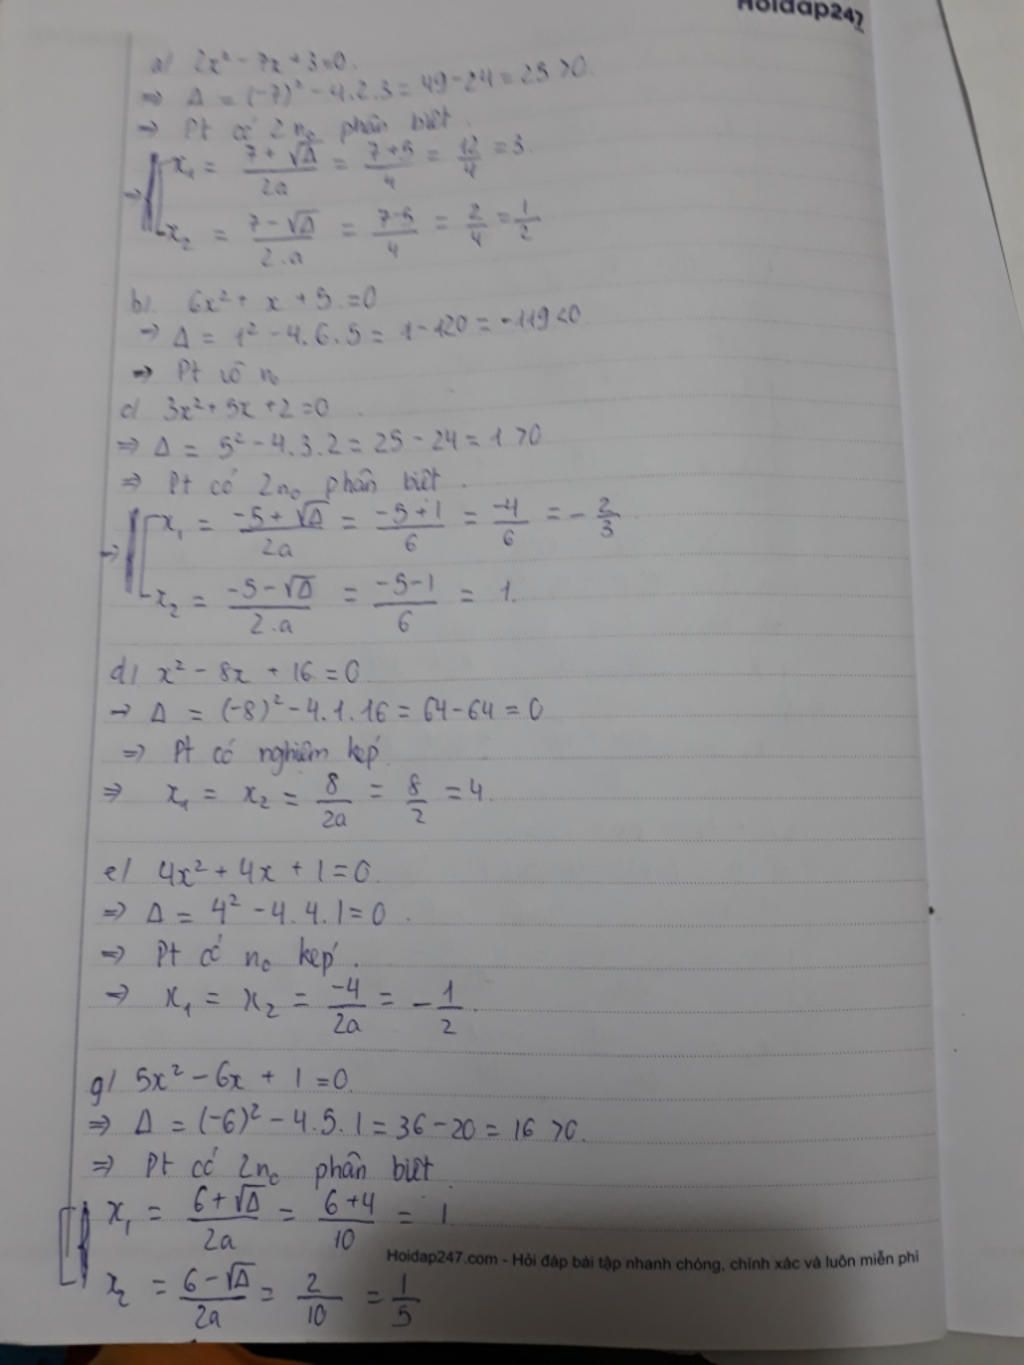 Hoidap247
a) 2x² - 7x + 3 = 0.
=> Δ = (-7)² - 4.2.3 = 49 - 24 = 25 > 0.
=> Pt có 2 n₀ phân biệt.
=> x₁ = (7 + √Δ)/2a = (7+5)/4 = 12/4 = 3.
x₂ = (7 - √Δ)/2.a = (7-5)/4 = 2/4 = 1/2
b) 6x² + x + 5 = 0
=> Δ = 1² - 4.6.5 = 1 - 120 = -119 < 0
=> Pt vô n₀
c) 3x² + 5x + 2 = 0
=> Δ = 5² - 4.3.2 = 25 - 24 = 1 > 0
=> Pt có 2n₀ phân biệt.
=> x₁ = (-5 + √Δ)/2a = (-5+1)/6 = -4/6 = -2/3
x₂ = (-5 - √Δ)/2.a = (-5-1)/6 = 1.
d) x² - 8x + 16 = 0
=> Δ = (-8)² - 4.1.16 = 64 - 64 = 0
=> Pt có nghiệm kép
=> x₁ = x₂ = 8/2a = 8/2 = 4.
e) 4x² + 4x + 1 = 0.
=> Δ = 4² - 4.4.1 = 0.
=> Pt có n₀ kép.
=> x₁ = x₂ = -4/2a = -1/2.
g) 5x² - 6x + 1 = 0.
=> Δ = (-6)² - 4.5.1 = 36 - 20 = 16 > 0.
=> Pt có 2n₀ phân biệt.
x₁ = (6 + √Δ)/2a = (6+4)/10 = 1
Hoidap247.com - Hỏi đáp bài tập nhanh chóng, chính xác và luôn miễn phí
x₂ = (6 - √Δ)/2a = 2/10 = 1/5